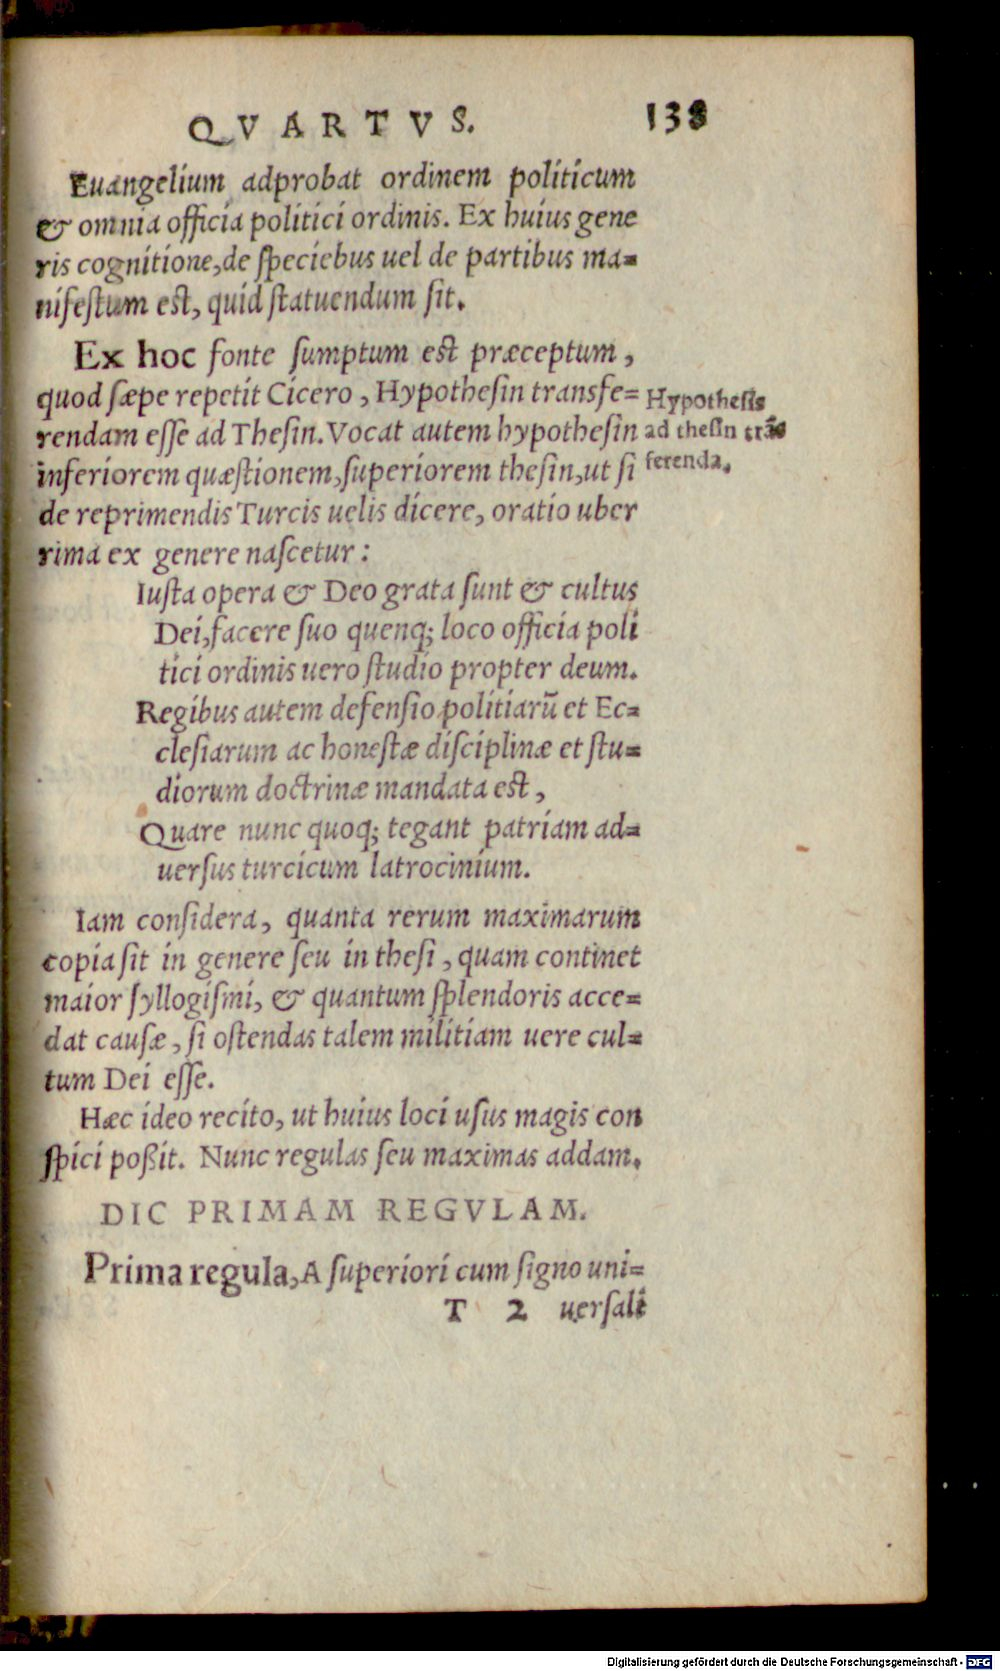 QVARTVS. 138
Euangelium adprobat ordinem politicum
& omnia officia politici ordinis. Ex huius gene
ris cognitione, de speciebus uel de partibus ma=
nifestum est, quid statuendum sit.
Ex hoc fonte sumptum est præceptum,
quod sæpe repetit Cicero, Hypothesin transfe=
rendam esse ad Thesin. Vocat autem hypothesin
inferiorem quæstionem, superiorem thesin, ut si
de reprimendis Turcis uelis dicere, oratio uber
rima ex genere nascetur:
Hypothesis
ad thesin trās
ferenda.
Iusta opera & Deo grata sunt & cultus
Dei, facere suo quenq; loco officia poli
tici ordinis uero studio propter deum.
Regibus autem defensio politiarū et Ec=
clesiarum ac honestæ disciplinæ et stu=
diorum doctrinæ mandata est,
Quare nunc quoq; tegant patriam ad=
uersus turcicum latrocinium.
Iam considera, quanta rerum maximarum
copia sit in genere seu in thesi, quam continet
maior syllogismi, & quantum splendoris acce=
dat causæ, si ostendas talem militiam uere cul=
tum Dei esse.
Hæc ideo recito, ut huius loci usus magis con
spici poßit. Nunc regulas seu maximas addam.
DIC PRIMAM REGVLAM.
Prima regula, A superiori cum signo uni=
T 2 uersali
Digitalisierung gefördert durch die Deutsche Forschungsgemeinschaft - DFG